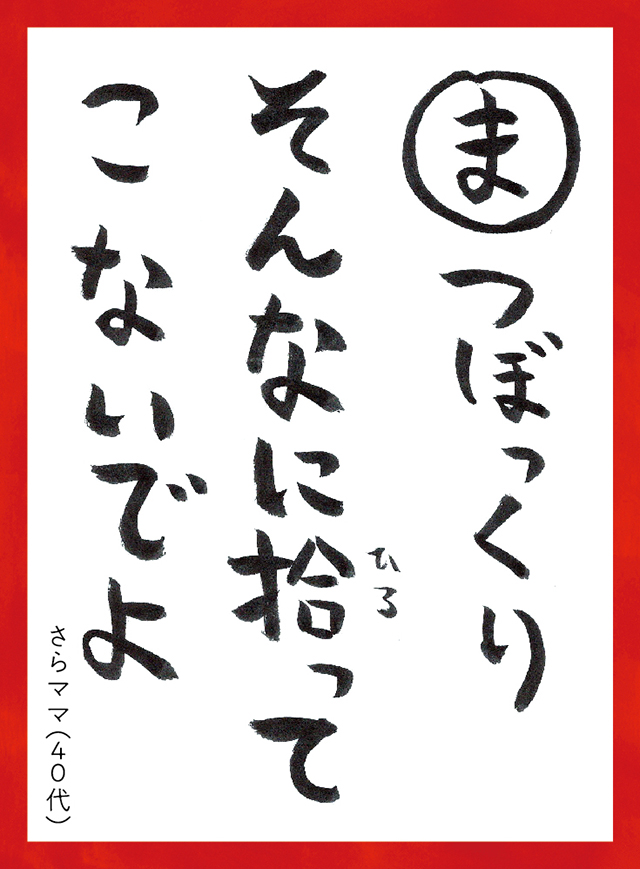 まつぼっくり
そんなに拾って
ひろ
こないでよ
さらママ(40代)